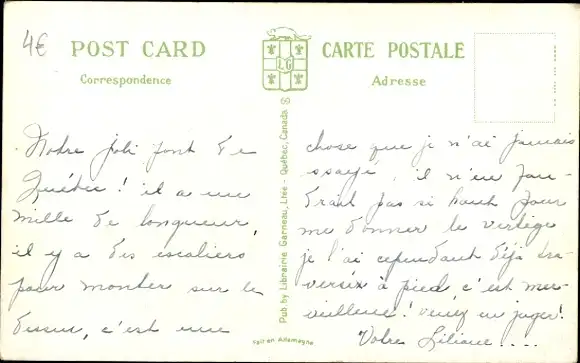 4€
POST CARD
Correspondence
CARTE POSTALE
Adresse
LG
Notre joli pont de
Québec! il a une
mille de longueur,
il y a des escaliers
pour monter sur le
dessus, c'est une
chose que je n'ai jamais
essayé, il n'en fau-
drait pas si haut pour
me donner le vertige
je l'ai cependant déjà tra-
versez à pied, c'est mer-
veilleux! venez en juger!
Votre Liliane....
Pub by Librairie Garneau, Ltée - Québec, Canada
Fait en Allemagne